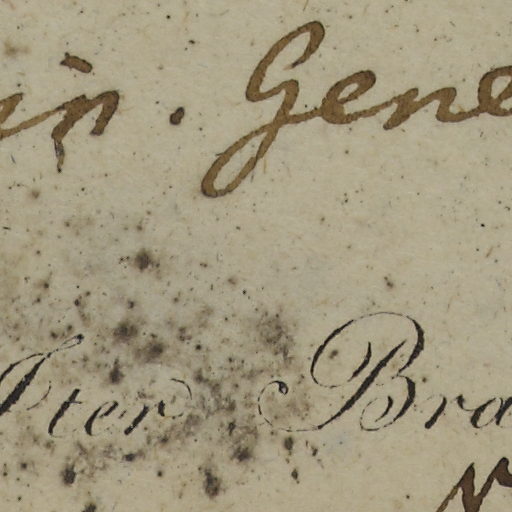 in. Gene
Iter Bra